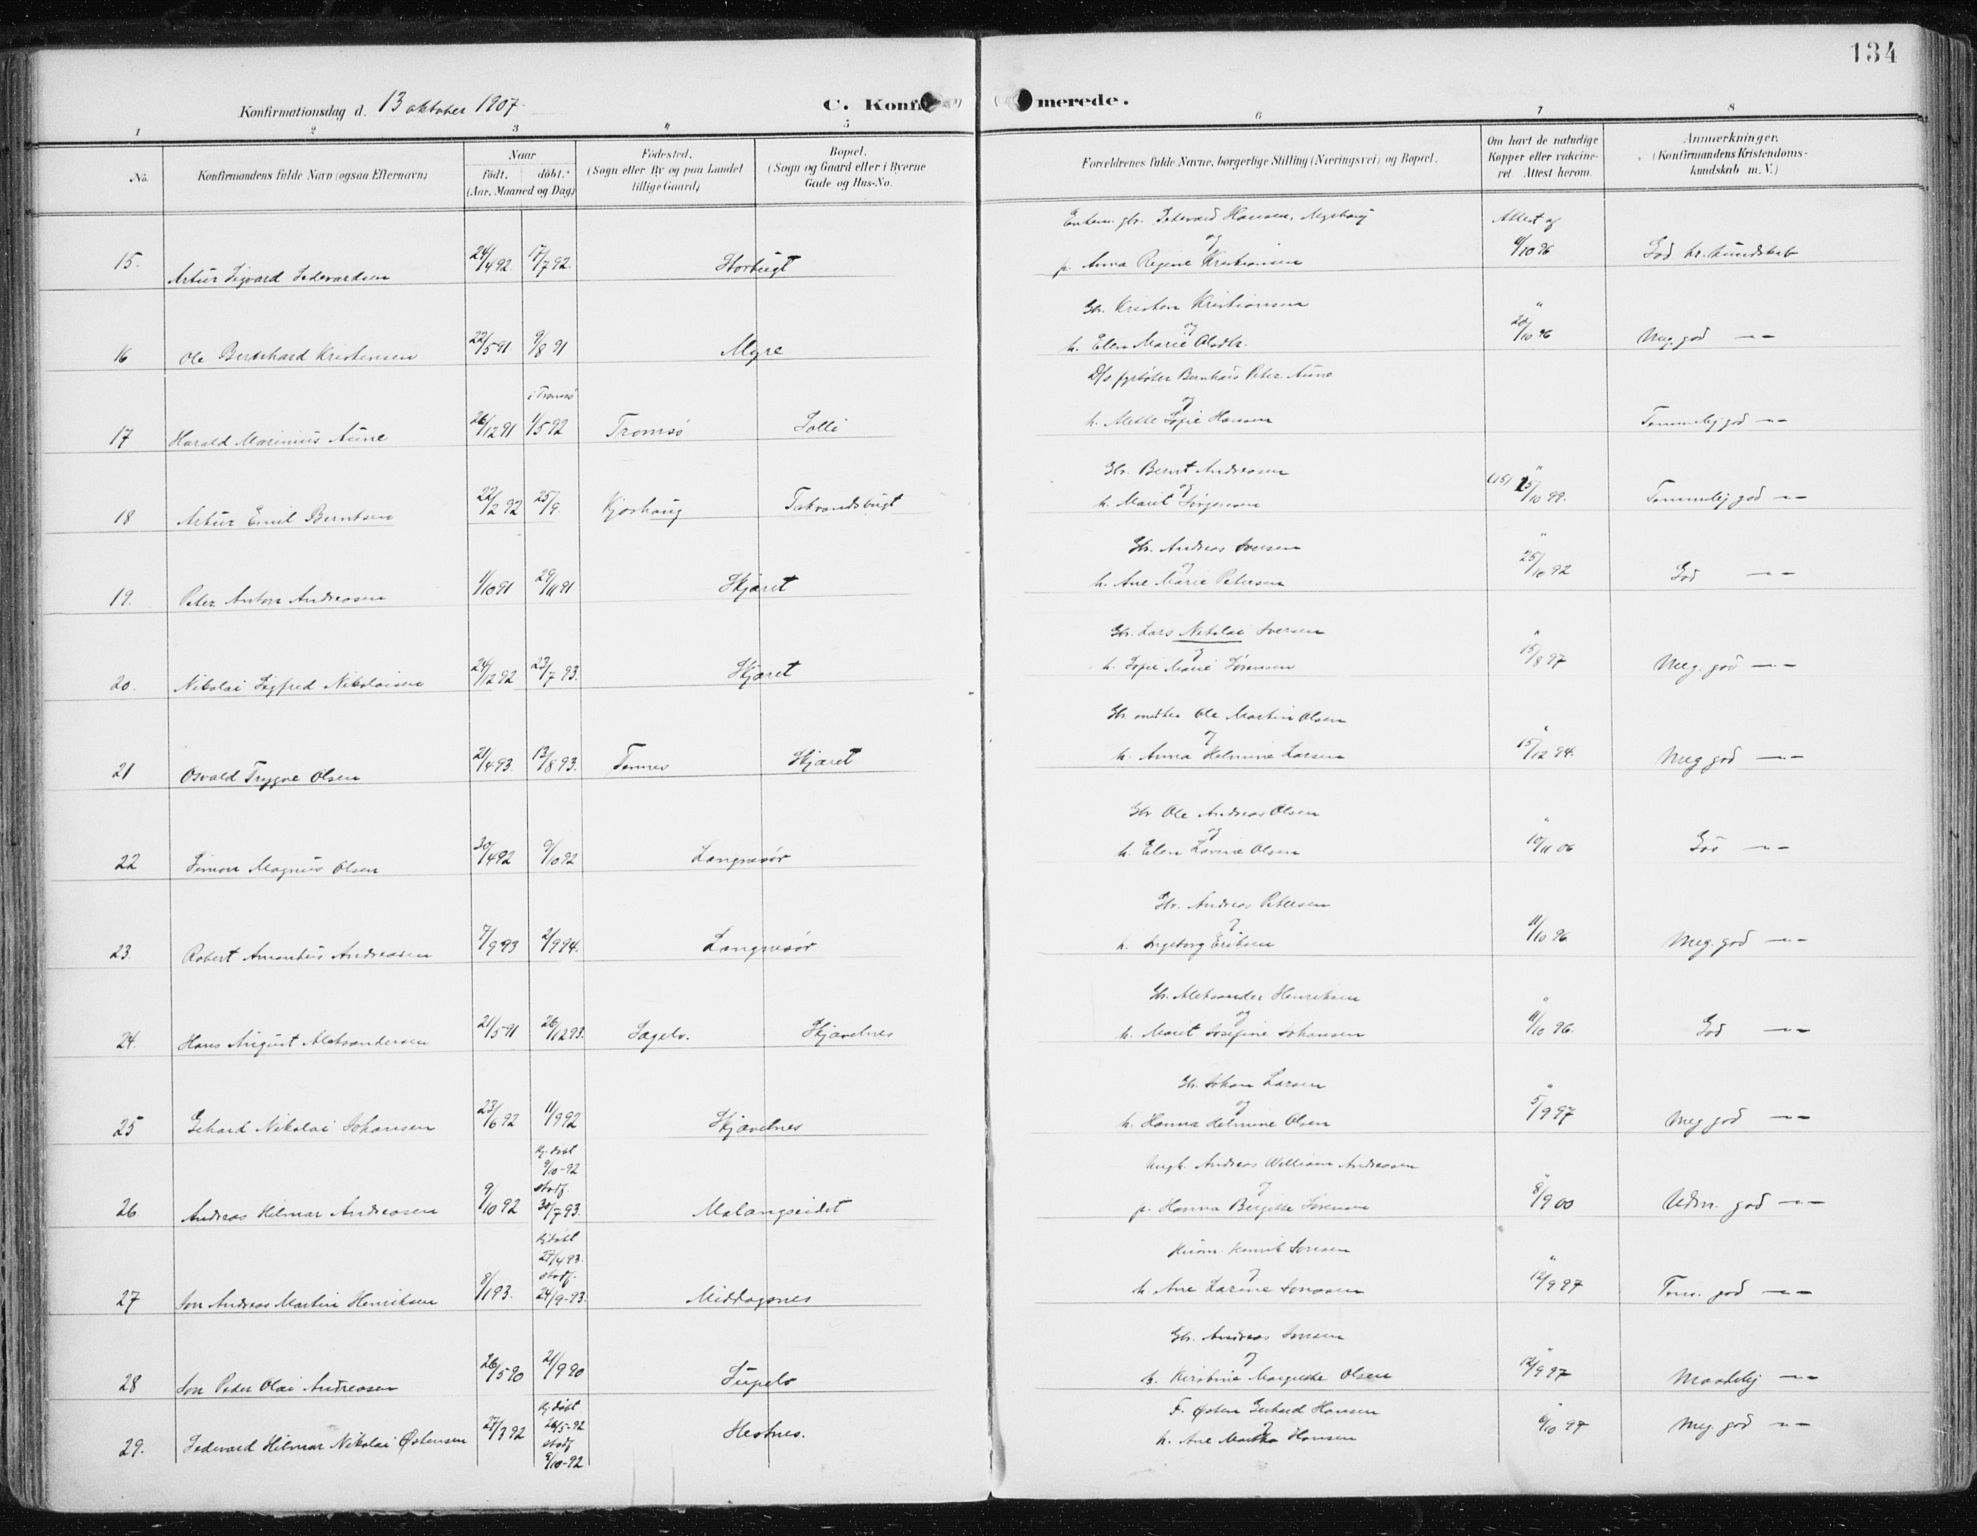 134
Konfirmationsdag d. 13 oktober 1907.
C. Konfir merede.
1 2 3 4 5 6 7 8
No. Konfirmandens fulde Navn (ogsaa Efternavn) Naar født. døbt. (Aar, Maaned og Dag) Fødested. (Sogn eller By og paa Landet tillige Gaard) Bopæl. (Sogn og Gaard eller i Byerne Gade og Hus-No. Forældrenes fulde Navne, borgerlige Stilling (Næringsvei) og Bopæl. Om havt de naturlige Kopper eller vakcineret. Attest herom. Anmærkninger. (Konfirmandens Kristendomskundskab m. V.)
Sedevard Hansen, Attest af
15. Artur Sigvard Sedevardsen 24/4 92. 17/7 92. Storbugt
og
p. Anna Regine Kristiansen 9/10 96 God kr. kundskab
Gbr. Kristen Kristiansen "
16 Ole Bernhard Kristensen 22/5 91 9/8 91 Myre
og
h. Elen Marie Olsdtr. 20/10 96 Meg. god —"—
D/s fyrbøter Bernhard Peter Aune
i Tromsø
17 Harald Marinius Aune 26/12 91 1/5 92 Tromsø Solli
og
h. Mette Sofie Hansen Temmelig god —"—
Gbr. Bernt Andreasen "
18 Artur Emil Berntsen 22/2 92 25/9. Kjoshaug Takvandsbugt
og
h. Marit Jørgensen 25/10 99. Temmelig god —"—
Gbr. Andreas Iversen "
19. Peter Anton Andreasen 1/10 91 29/11 91 Skjæret
og
h. Ane Marie Petersen 25/10 92 God —"—
Gbr. Lars Nikolai Iversen "
20. Nikolai Sigfred Nikolaisen 24/12 92 23/7 93. Skjæret
og
h. Sofie Marie Sørensen 15/8 97 Meg. god —"—
Gbr Ole Martin Olsen "
21 Osvald Trygve Olsen 21/4 93. 13/8 93. Tennes Skjæret
og
h. Anna Helmine Larsen 15/12 94. Meg god —"—
Gbr Ole Andreas Olsen "
22 Simon Magnus Olsen 30/4 92 9/10 92 Langnesør
og
h. Elen Olsen 10/11 06 God —"—
Gbr. Andreas Petersen "
23. Robert Amandus Andreasen 7/9 93 2/9 94. Langnesør
og
h. Ingeborg Eriksen 11/10 96. Meg. god —"—
Gbr. Aleksander Henriksen "
24. Hans August Aleksandersen 21/5 91 26/12 93. Sagelv. Skjævelnes
og
h. Marit Josefine Johansen 11/10 96. God —"—
Gbr. Johan Larsen "
25 Gehard Nikolai Johansen 23/6 92 11/9 92 Skjævelnes
og
h. Hanna Helmine Olsen 5/9 97 Meg god —"—
Hj. døbt
9/10-92 Ungk. Andreas William Andreasen
stadf. "
26 Andreas Hilmar Andreasen 9/10 92 30/7 93. Malangseidet
og
p. Hanna Bergitte Sørensen 8/9 00 Udm. god —"—
Hj. døbt
27/4 93. Henrik Jonsen
stadf. "
27 Jon Andreas Martin Henriksen 8/1 93. 24/9-93. Middagsnes
og
h. Ane Larine Jonassen 12/9 97 Tem. god —"—
Gbr. Andreas Jonsen "
28 Jon Peder Olai Andreasen 26/5 90 21/9 90 Supelv
og
h. Kirstine Margrethe Olsen 12/9 97 Maadelig —"—
Hj. døbt F. Østen Gerhard Hansen
26/5-92 og "
29. Sedevard Hilmar Nikolai Østensen 27/3 92 stadf. Hestnes. h. Ane Martha Hansen 6/10 97 Meg. god —"—
9/10-92